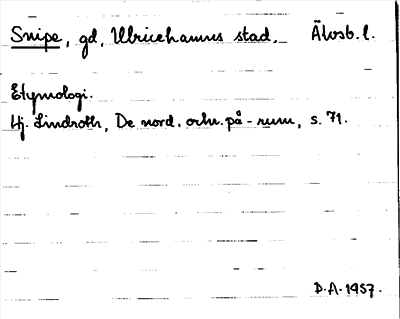 Snipe, gd, Ulricehamns stad. Älvsb. l.
Etymologi.
Hj. Lindroth, De nord. ortn. på -rum, s. 71.
D.A. 1957.